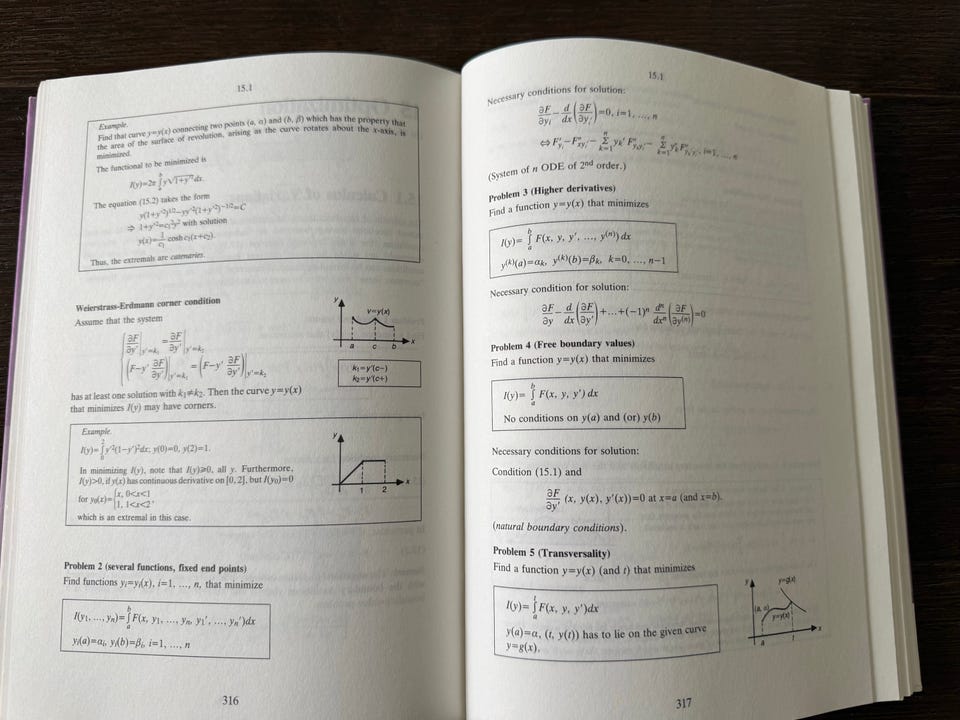 15.1
Example.
Find that curve y=y(x) connecting two points (a, α) and (b, β) which has the property that
the area of the surface of revolution, arising as the curve rotates about the x-axis, is
minimized.
The functional to be minimized is
I(y)=2π ∫ₐᵇ y√(1+y'²) dx.
The equation (15.2) takes the form
y(1+y'²)^(1/2)–yy'²(1+y'²)^(–1/2)=C
⇒ 1+y'²=c₁²y² with solution
y(x)=1/c₁ cosh c₁(x+c₂).
Thus, the extremals are catenaries.
Weierstrass-Erdmann corner condition
Assume that the system
∂F/∂y' |y'=k₁ = ∂F/∂y' |y'=k₂
(F–y' ∂F/∂y')|y'=k₁ = (F–y' ∂F/∂y')|y'=k₂
y
y=y(x)
a c b x
k₁=y'(c–)
k₂=y'(c+)
has at least one solution with k₁≠k₂. Then the curve y=y(x)
that minimizes I(y) may have corners.
Example.
I(y)= ∫₀² y'²(1–y')²dx; y(0)=0, y(2)=1.
In minimizing I(y), note that I(y)⩾0, all y. Furthermore,
I(y)>0, if y(x) has continuous derivative on [0, 2], but I(y₀)=0
for y₀(x)= {x, 0<x<1
1, 1<x<2,
which is an extremal in this case.
y
1 2 x
Problem 2 (several functions, fixed end points)
Find functions yᵢ=yᵢ(x), i=1, ..., n, that minimize
I(y₁, ..., yₙ)= ∫ₐᵇ F(x, y₁, ..., yₙ, y₁', ..., yₙ')dx
yᵢ(a)=αᵢ, yᵢ(b)=βᵢ, i=1, ..., n
316
15.1
Necessary conditions for solution:
∂F/∂yᵢ – d/dx (∂F/∂yᵢ')=0, i=1, ..., n
⇔ F'yᵢ–F''xyᵢ'– Σₖ₌₁ⁿ yₖ' F''yₖyᵢ'– Σₖ₌₁ⁿ yₖ'' F''yₖ'yᵢ', i=1, ..., n
(System of n ODE of 2nd order.)
Problem 3 (Higher derivatives)
Find a function y=y(x) that minimizes
I(y)= ∫ₐᵇ F(x, y, y', ..., y⁽ⁿ⁾) dx
y⁽ᵏ⁾(a)=αₖ, y⁽ᵏ⁾(b)=βₖ, k=0, ..., n–1
Necessary condition for solution:
∂F/∂y – d/dx (∂F/∂y')+...+(–1)ⁿ dⁿ/dxⁿ (∂F/∂y⁽ⁿ⁾)=0
Problem 4 (Free boundary values)
Find a function y=y(x) that minimizes
I(y)= ∫ₐᵇ F(x, y, y') dx
No conditions on y(a) and (or) y(b)
Necessary conditions for solution:
Condition (15.1) and
∂F/∂y' (x, y(x), y'(x))=0 at x=a (and x=b).
(natural boundary conditions).
Problem 5 (Transversality)
Find a function y=y(x) (and t) that minimizes
I(y)= ∫ₐᵗ F(x, y, y')dx
y(a)=α, (t, y(t)) has to lie on the given curve
y=g(x).
y
y=g(x)
(a, α)
y=y(x)
a t x
317